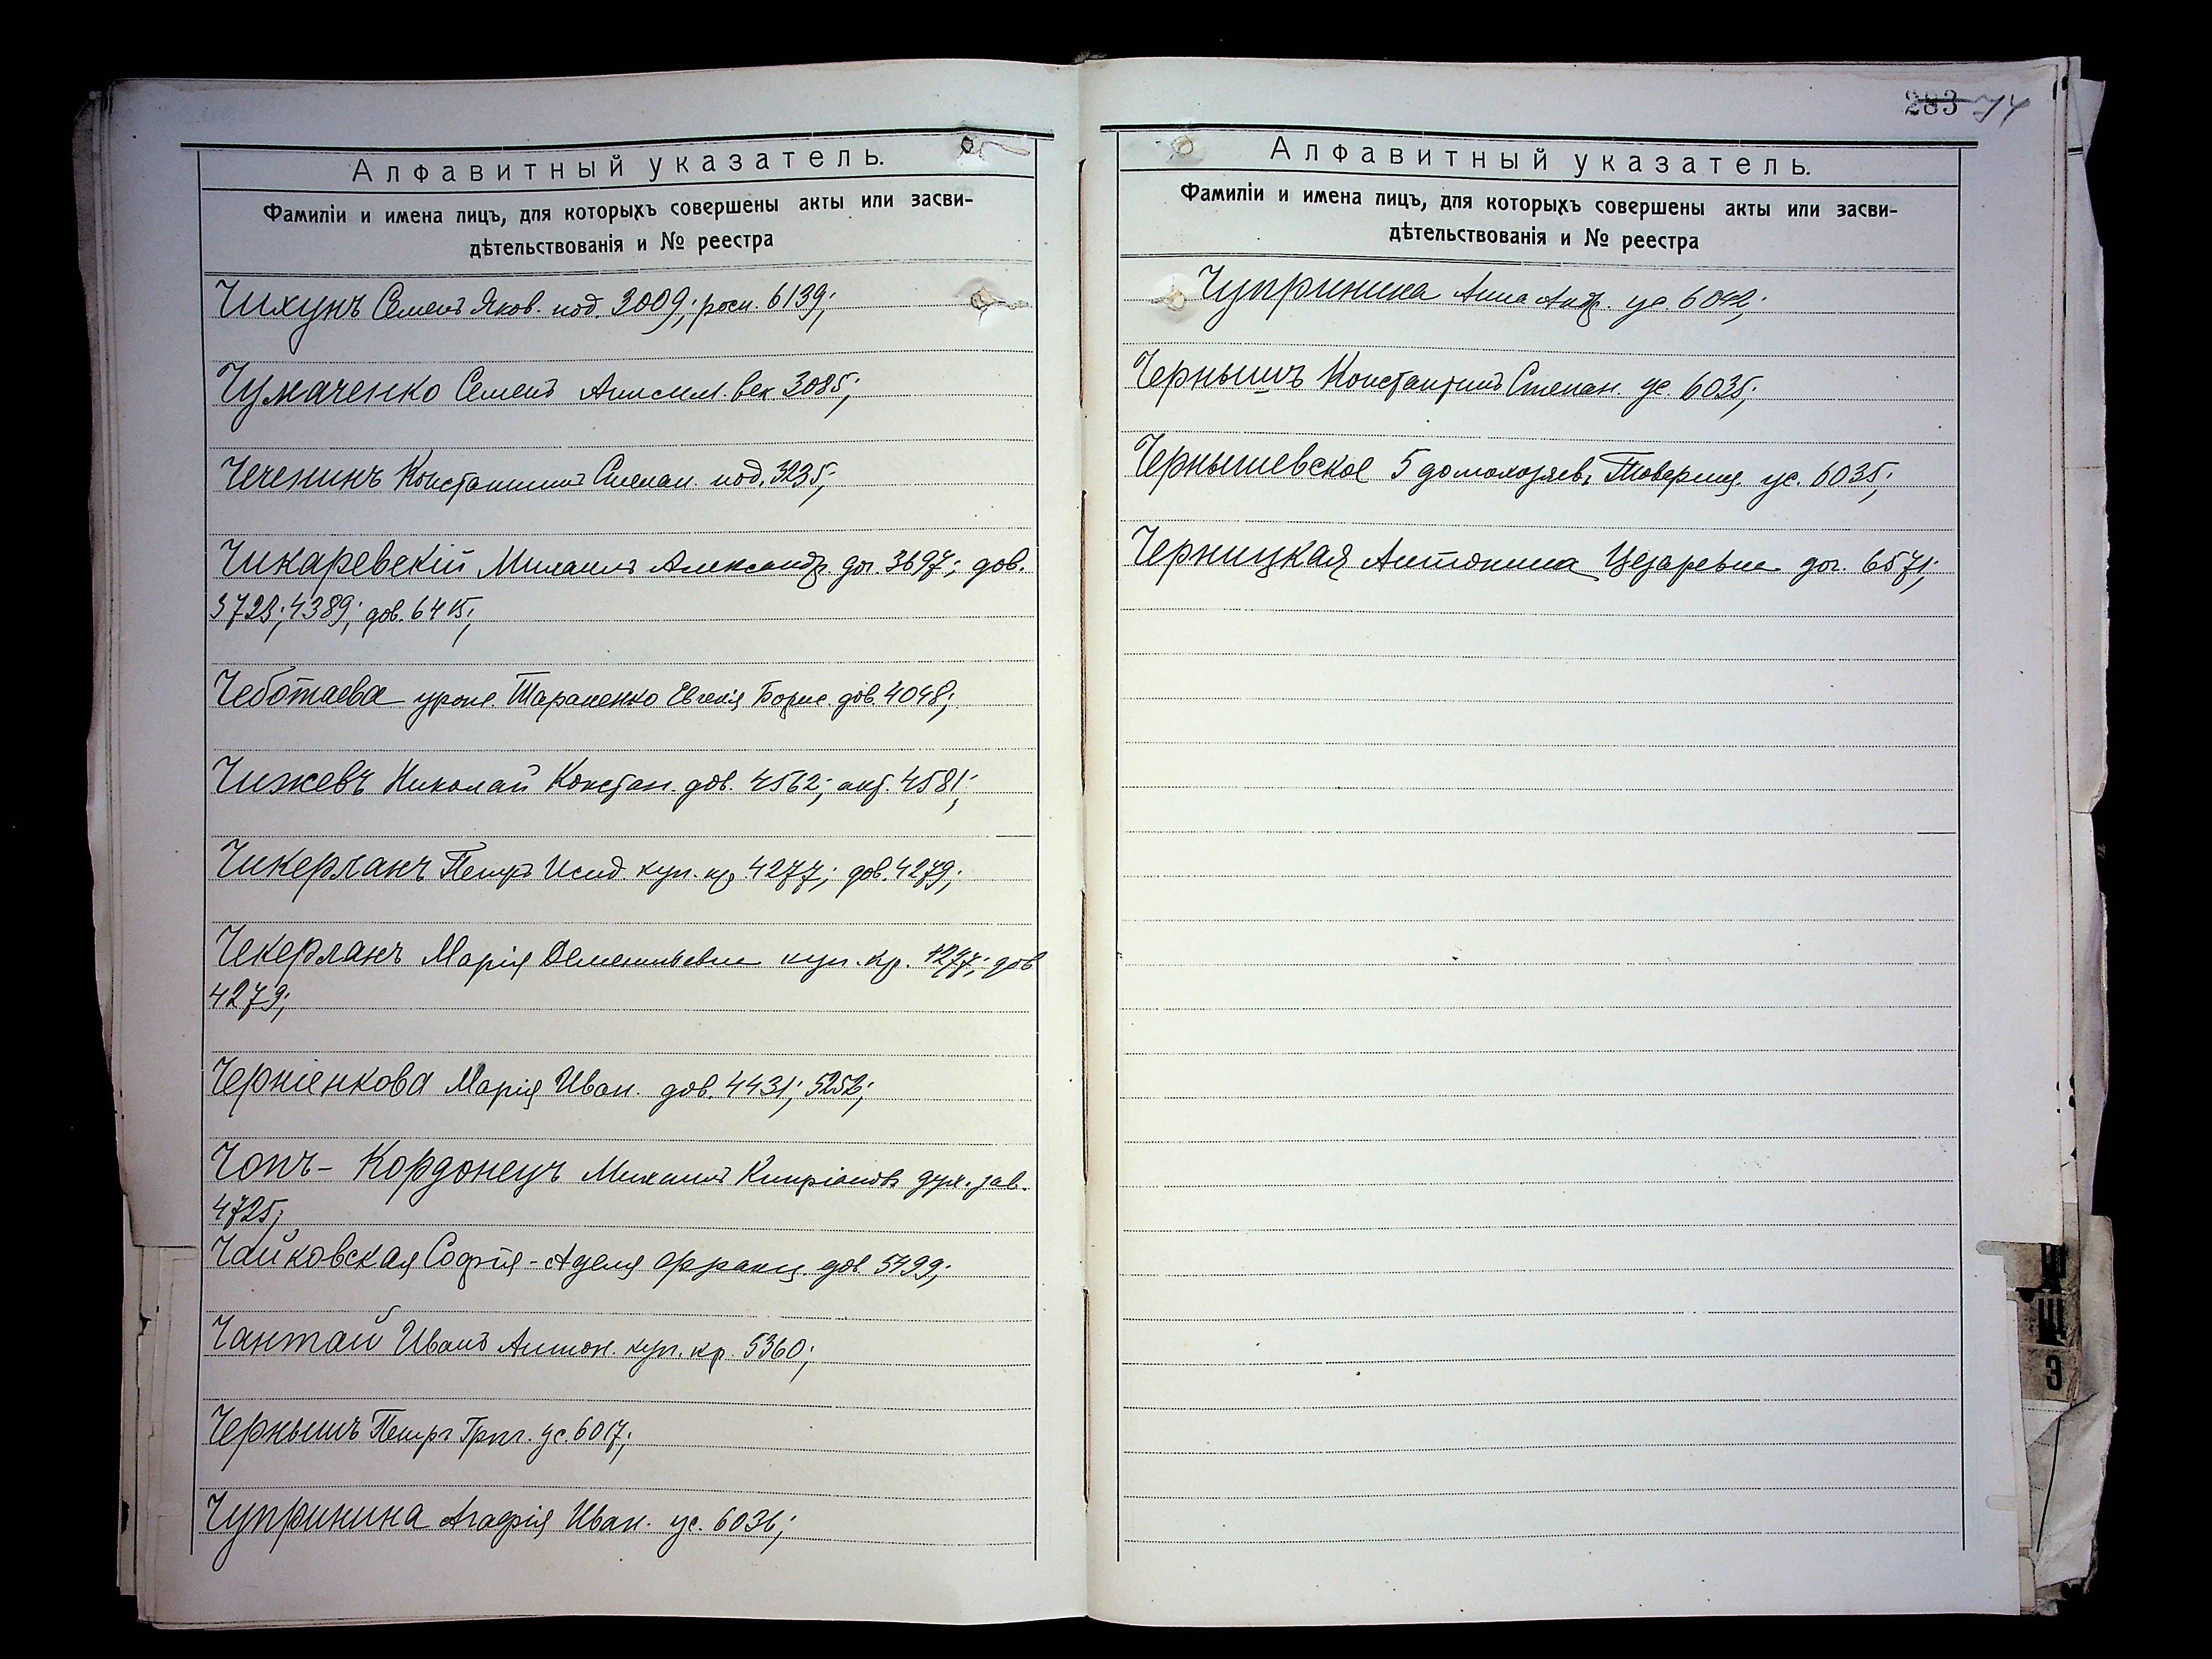 Алфавитный указатель.
Фамиліи и имена лицъ, для которыхъ совершены акты или засви-
дѣтельствованія и № реестра
Чихунъ Семенъ Яков. под. 3009; росп. 6139;
Чумаченко Семенъ Анисим. век. 3085;
Чеченинъ Константинъ Степан. под. 3235;
Чикаревскій Михаилъ Александр. дог. 3697; дов.
3728; 4389; дов. 6415;
Чеботаева урожд. Тараненко Евгенія Борис. дов. 4048;
Чижевъ Николай Констан. дов. 4562; акт. 4581;
Чикерланъ Петръ Исид. куп. кр. 4277; дов. 4279;
Чекерланъ Марія Дементьевна куп. кр. 4277; дов
4279;
Черненкова Марія Иван. дов. 4431; 5252;
Чопъ-Кордонецъ Михаилъ Кипріановъ дух. зав.
4725;
Чайковская Софія-Аделя Франц. дов. 5499;
Чантай Иванъ Антон. куп. кр. 5360;
Чернышъ Петръ Григ. ус. 6017;
Чупринина Агафія Иван. ус. 6036;
283 74
Алфавитный указатель.
Фамиліи и имена лицъ, для которыхъ совершены акты или засви-
дѣтельствованія и № реестра
Чупринина Анна Андр. ус. 6042;
Чернышъ Константинъ Степан. ус. 6035;
Чернышевское 5 домохозяевъ Товарищ. ус. 6035;
Черницкая Антонина Цезаревна дог. 6571;
Ш
Щ
Э